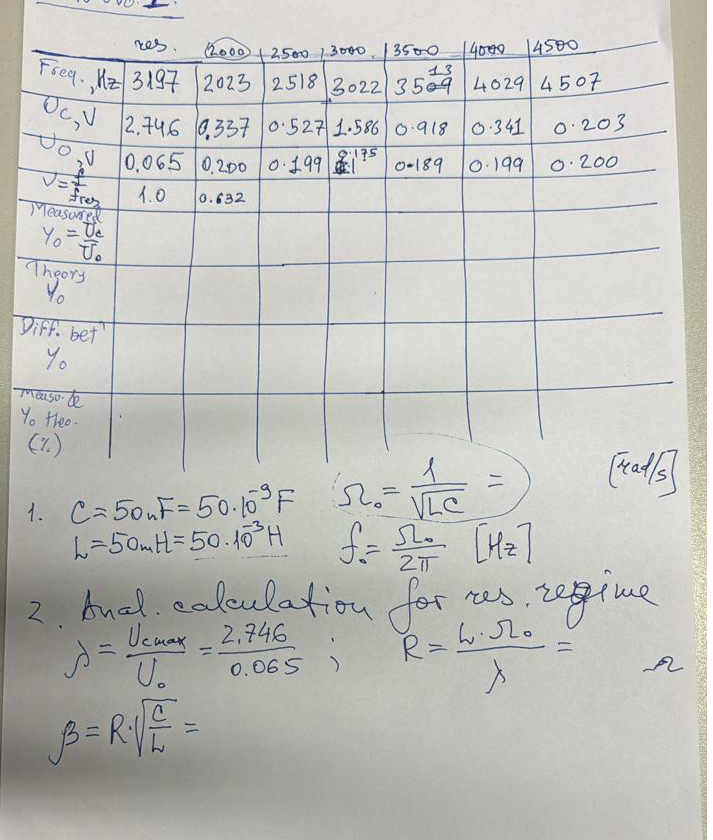 res. 2000 2500 3000 3500 4000 4500
Freq., Hz 3197 2023 2518 3022 3513 4029 4507
Uc, V 2.746 0.337 0.527 1.586 0.918 0.341 0.203
Uo, V 0.065 0.200 0.199 0.175 0.189 0.199 0.200
ν = f/fres 1.0 0.632
Measured
Yo = Uc/Uo
Theory
Yo
Diff. bet
Yo
Measu. &
Yo theo.
(%)
1. C = 50nF = 50·10⁻⁹F Ωo = 1/√LC = [rad/s]
L = 50mH = 50·10⁻³H fo = Ωo/2π [Hz]
2. Anal. calculation for res. regime
λ = Ucmax/Uo = 2.746/0.065 ; R = L·Ωo/λ = Ω
β = R·√C/L =